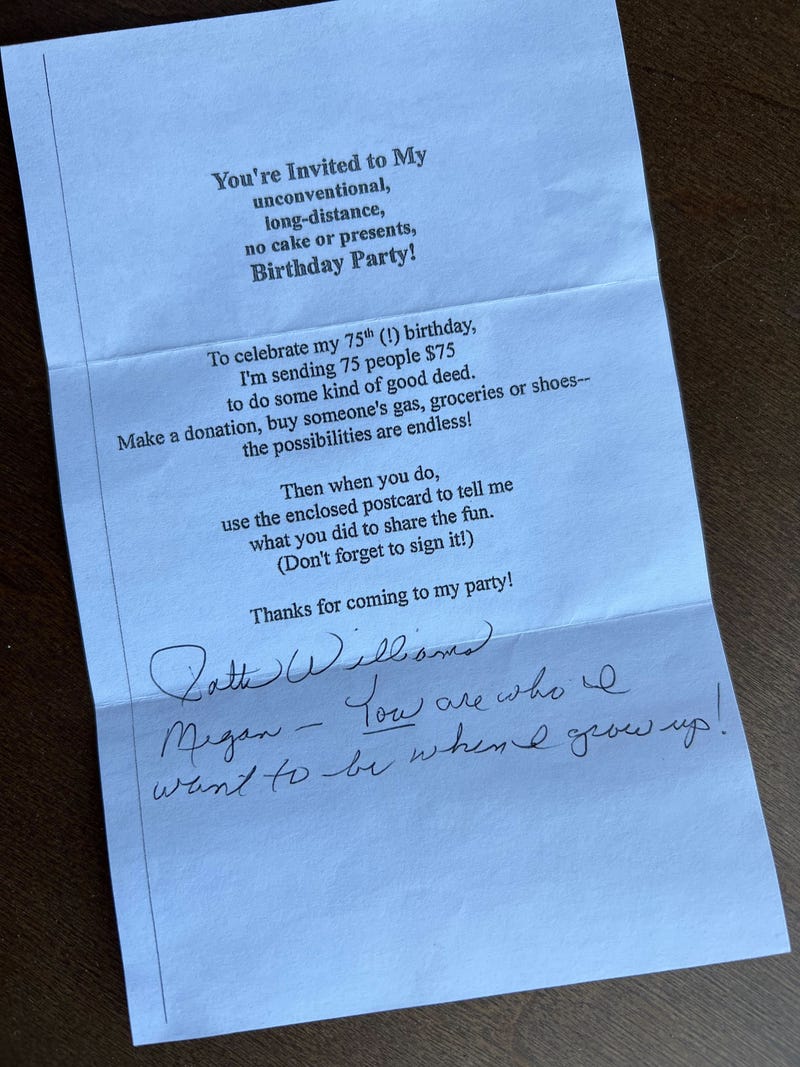 You're Invited to My
unconventional,
long-distance,
no cake or presents,
Birthday Party!
To celebrate my 75th (!) birthday,
I'm sending 75 people $75
to do some kind of good deed.
Make a donation, buy someone's gas, groceries or shoes--
the possibilities are endless!
Then when you do,
use the enclosed postcard to tell me
what you did to share the fun.
(Don't forget to sign it!)
Thanks for coming to my party!
Patti Williams
Megan – You are who I
want to be when I grow up!